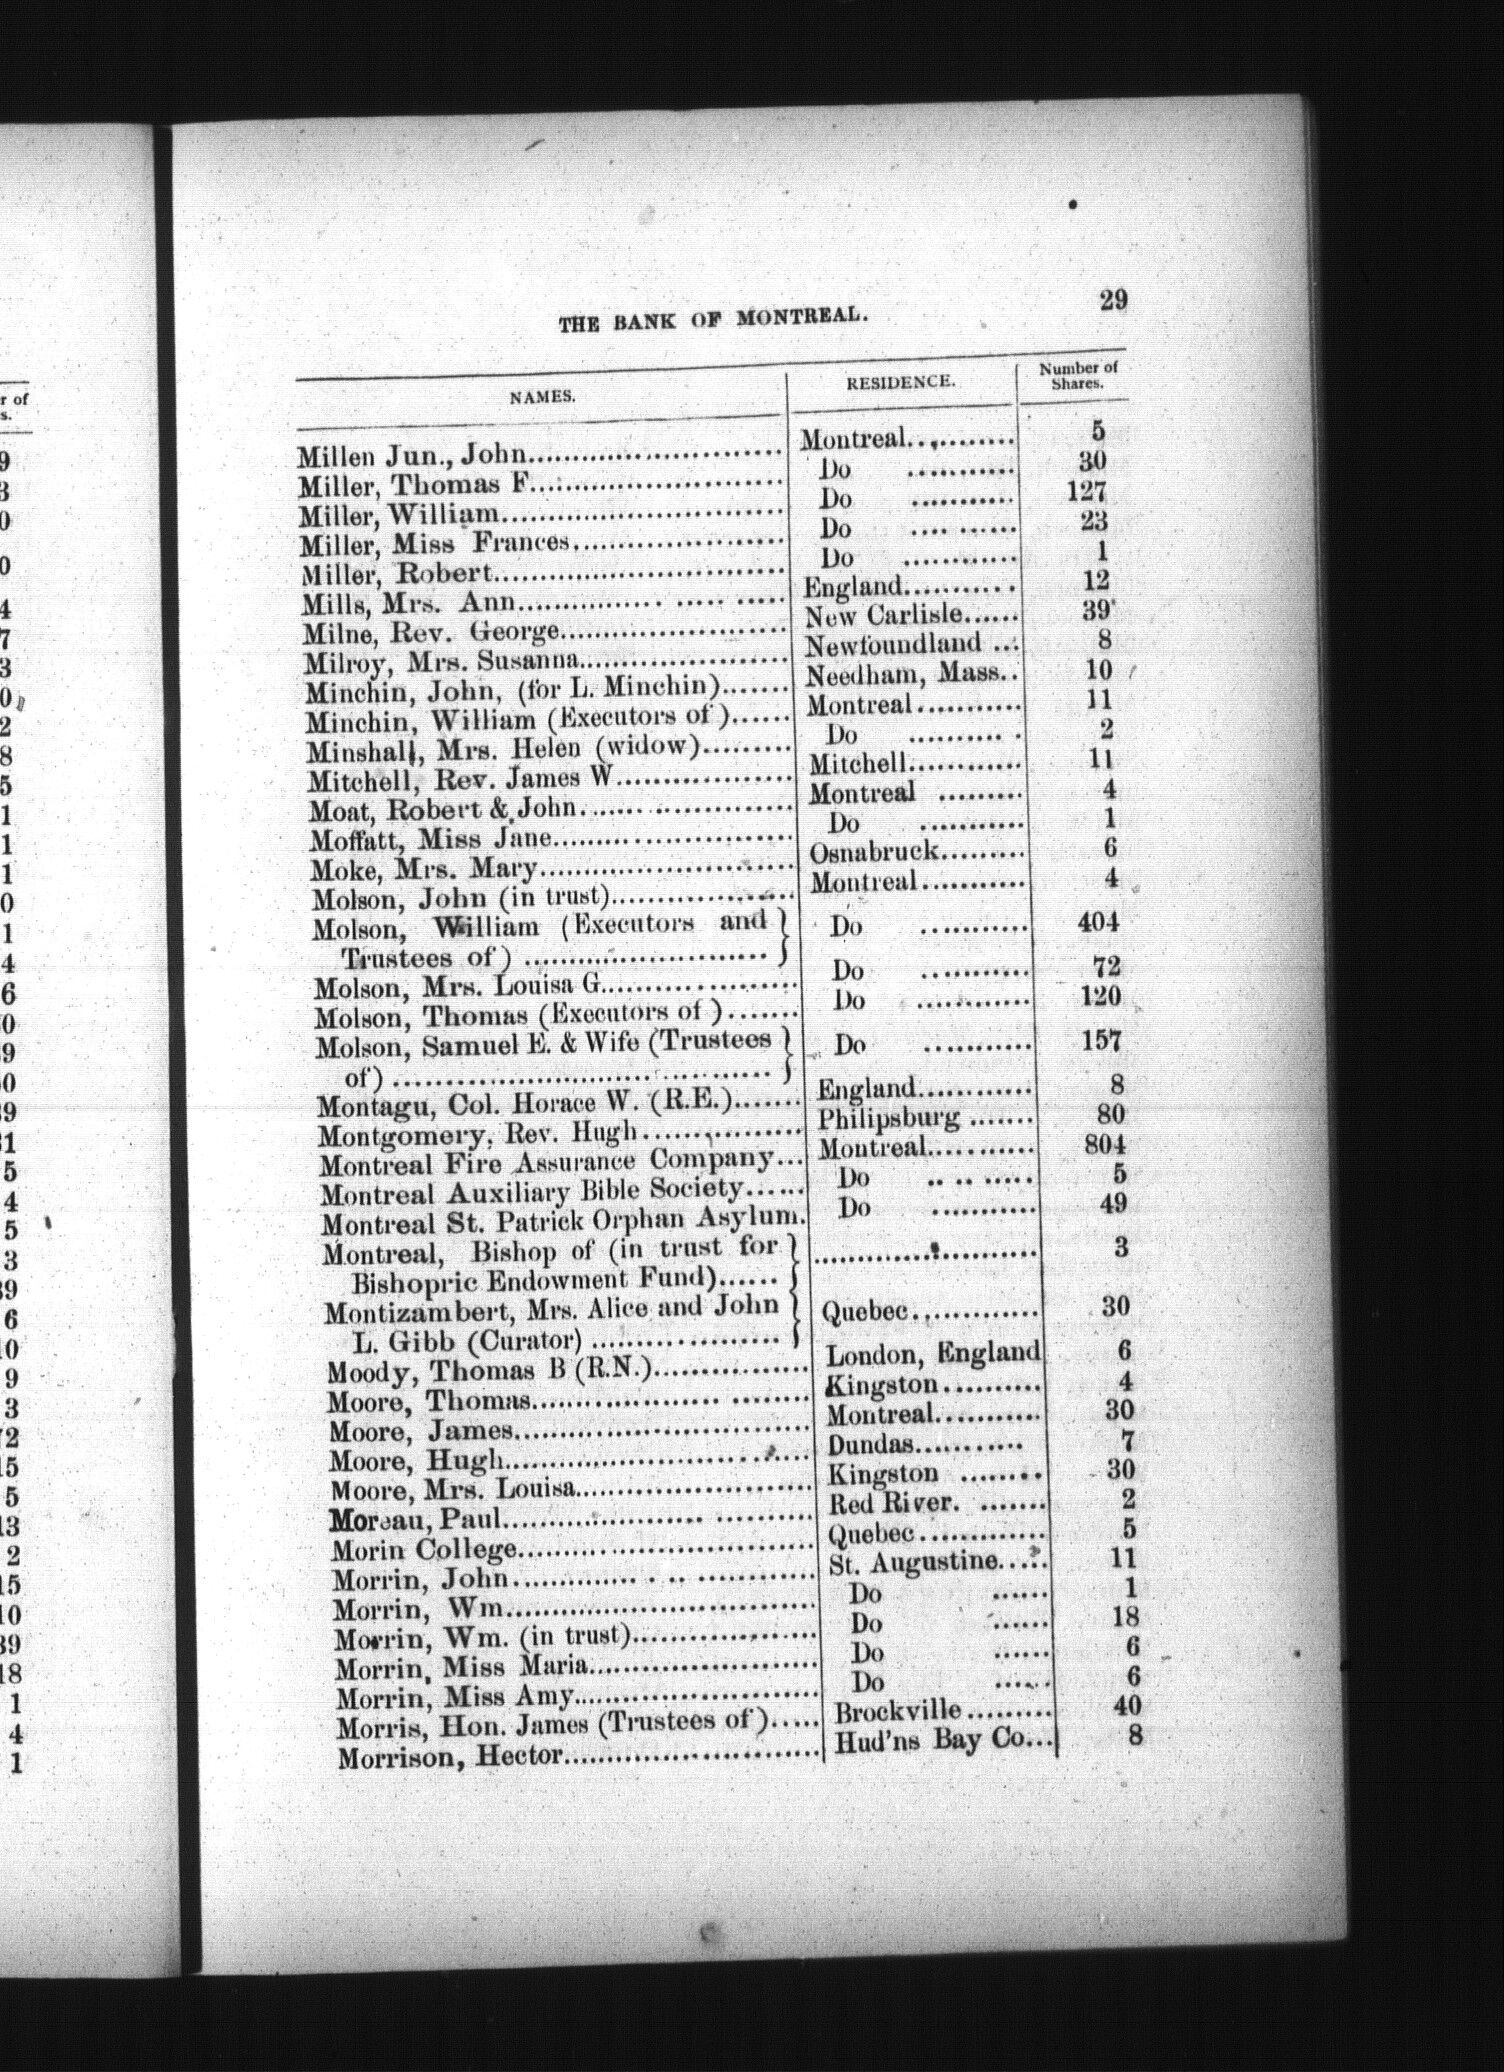 r of
s.
9
3
0
0
4
7
3
0
2
8
5
1
1
1
0
1
4
6
0
9
0
39
31
5
4
5
3
39
6
10
9
3
72
15
5
13
2
15
10
39
18
1
4
1
THE BANK OF MONTREAL. 29
NAMES. RESIDENCE. Number of Shares.
Millen Jun., John Montreal 5
Miller, Thomas F. Do 30
Miller, William Do 127
Miller, Miss Frances Do 23
Miller, Robert Do 1
Mills, Mrs. Ann England 12
Milne, Rev. George New Carlisle 39
Milroy, Mrs. Susanna Newfoundland 8
Minchin, John, (for L. Minchin) Needham, Mass. 10
Minchin, William (Executors of) Montreal 11
Minshall, Mrs. Helen (widow) Do 2
Mitchell, Rev. James W Mitchell 11
Moat, Robert & John Montreal 4
Moffatt, Miss Jane Do 1
Moke, Mrs. Mary Osnabruck 6
Molson, John (in trust) Montreal 4
Molson, William (Executors and
Trustees of) Do 404
Molson, Mrs. Louisa G. Do 72
Molson, Thomas (Executors of) Do 120
Molson, Samuel E. & Wife (Trustees
of) Do 157
Montagu, Col. Horace W. (R.E.) England 8
Montgomery, Rev. Hugh Philipsburg 80
Montreal Fire Assurance Company Montreal 804
Montreal Auxiliary Bible Society Do 5
Montreal St. Patrick Orphan Asylum. Do 49
Montreal, Bishop of (in trust for
Bishopric Endowment Fund) 3
Montizambert, Mrs. Alice and John
L. Gibb (Curator) Quebec 30
Moody, Thomas B (R.N.) London, England 6
Moore, Thomas Kingston 4
Moore, James Montreal 30
Moore, Hugh Dundas 7
Moore, Mrs. Louisa Kingston 30
Moreau, Paul Red River. 2
Morin College Quebec 5
Morrin, John St. Augustine 11
Morrin, Wm. Do 1
Morrin, Wm. (in trust) Do 18
Morrin, Miss Maria Do 6
Morrin, Miss Amy Do 6
Morris, Hon. James (Trustees of) Brockville 40
Morrison, Hector Hud'ns Bay Co. 8